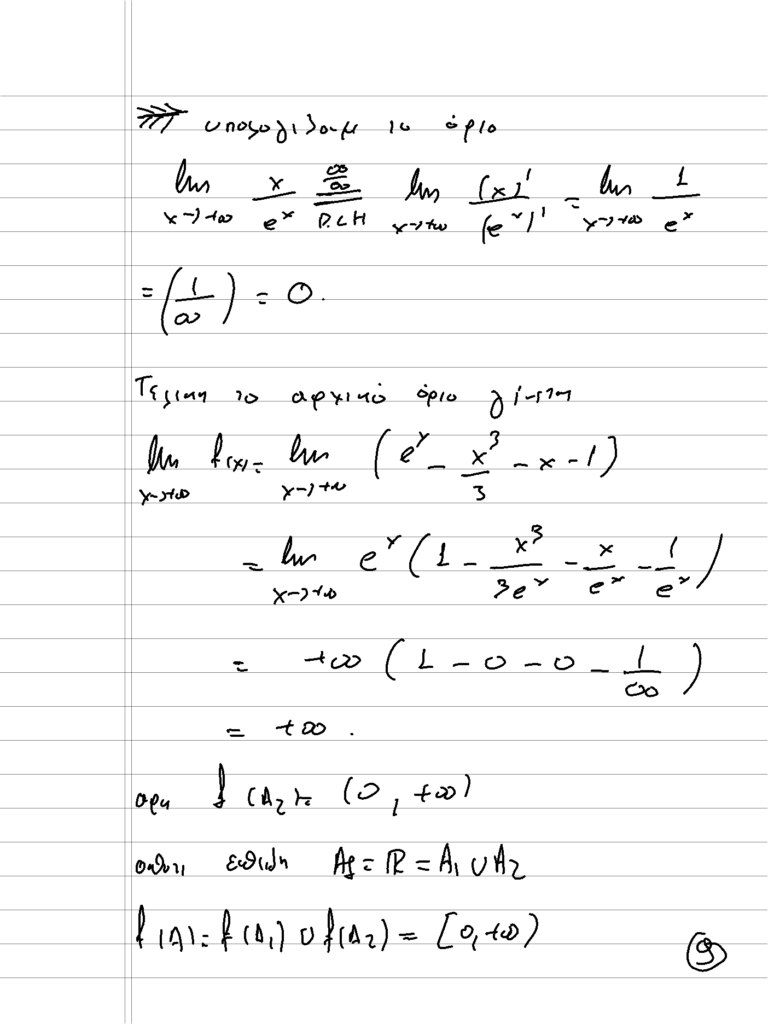 υπολογιζουμε το όριο
lim x→+∞ x/e^x =(∞/∞, D.L.H) lim x→+∞ (x)'/(e^x)' = lim x→+∞ 1/e^x
= (1/∞) = 0.
Τελικη το αρχικό όριο γίνεται
lim x→+∞ f(x) = lim x→+∞ (e^x - x^3/3 - x - 1)
= lim x→+∞ e^x (1 - x^3/3e^x - x/e^x - 1/e^x)
= +∞ (1 - 0 - 0 - 1/∞)
= +∞.
αρα f(A2) = (0, +∞)
Af = ℝ = A1 ∪ A2
f(A) = f(A1) ∪ f(A2) = [0, +∞)
9